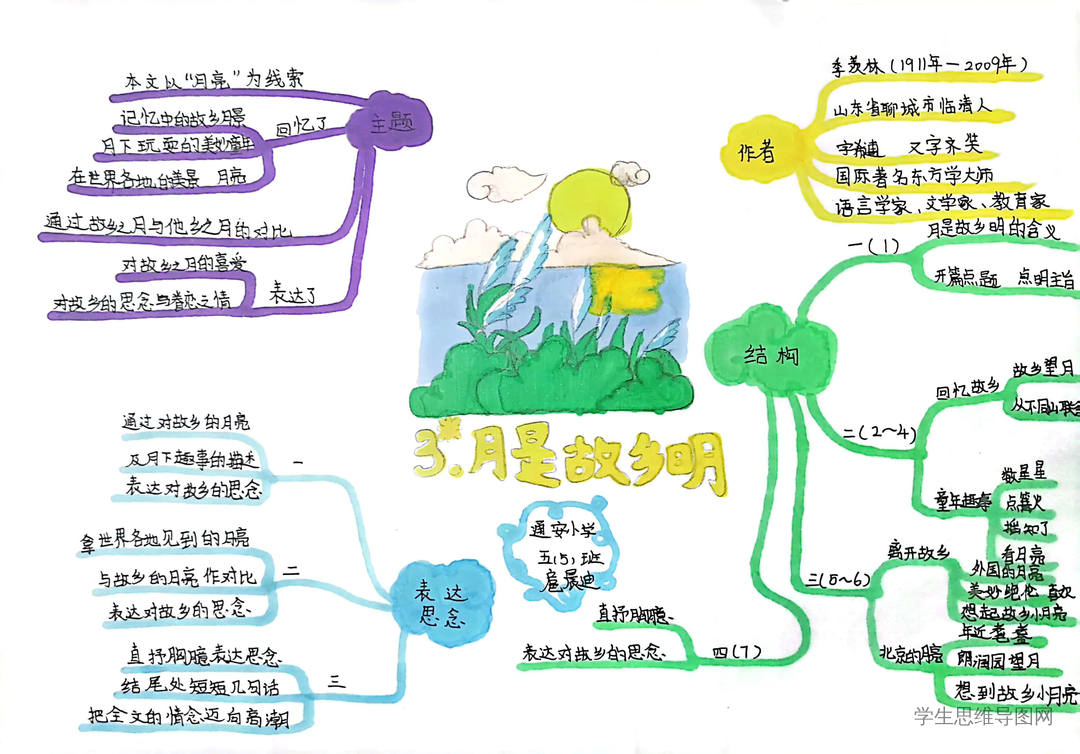 本文以“月亮”为线索
主题
记忆中的故乡月景
回忆了
月下玩耍的美妙童年
在世界各地的美景 月亮
通过故乡之月与他乡之月的对比
对故乡之月的喜爱
表达了
对故乡的思念与眷恋之情
作者
季羡林(1911年—2009年)
山东省聊城市临清人
又字齐奘
国际著名东方学大师
语言学家、文学家、教育家
结构
一(1)
月是故乡明的含义
开篇点题 点明主旨
二(2~4)
回忆故乡
故乡望月
从不同山联
童年趣事
数星星
点篝火
摇知了
看月亮
三(5~6)
离开故乡
外国的月亮
美妙绝伦
想起故乡小月亮
北京的月亮
年近耄耋
朗润园望月
想到故乡小月亮
四(7)
直抒胸臆
表达对故乡的思念
3*.月是故乡明
通安小学
五(5)班
表达
思念
一
通过对故乡的月亮
及月下趣事的描述
表达对故乡的思念
二
拿世界各地见到的月亮
与故乡的月亮作对比
表达对故乡的思念
三
直抒胸臆表达思念
结尾处短短几句话
把全文的情念迈向高潮
学生思维导图网